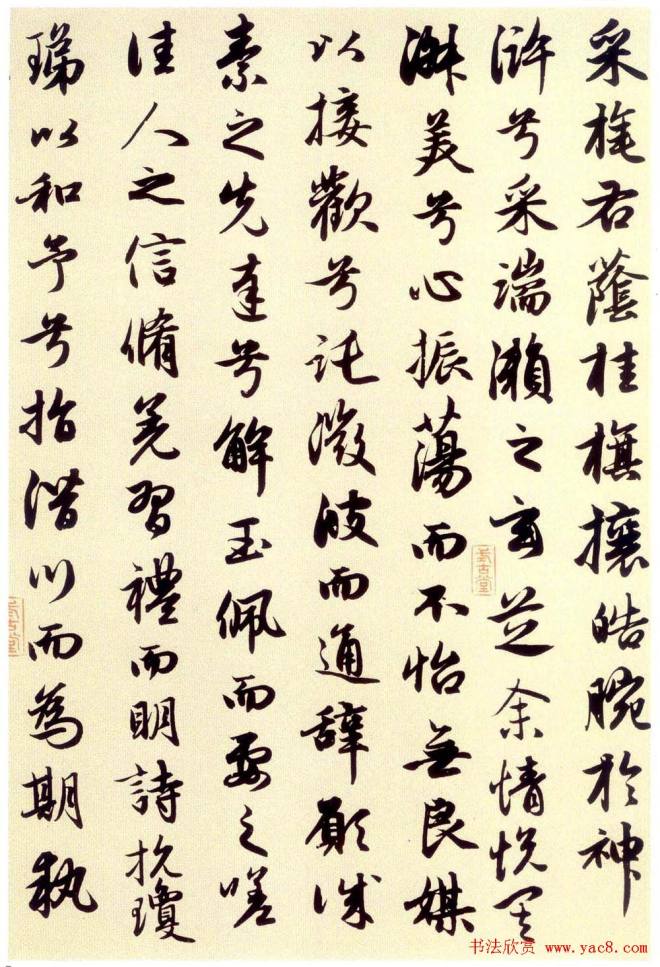 采旄右蔭桂旗攘皓腕於神
滸兮采湍瀨之玄芝余情悅其
淑美兮心振蕩而不怡無良媒
以接歡兮託微波而通辭願誠
素之先達兮解玉佩而要之嗟
佳人之信脩羌習禮而明詩抗瓊
珶以和予兮指潛川而為期執
书法欣赏 www.yac8.com